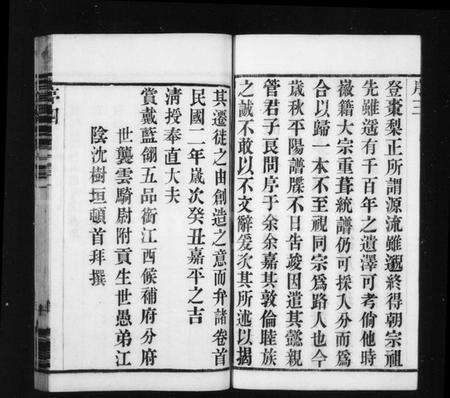 序三
登棗梨正所謂源流雖遡終得朝宗祖
先雖遥有千百年之遺澤可考倘他時
徽籍大宗重葺統譜仍可採入分而爲
合以歸一本不至視同宗爲路人也今
歲秋平陽譜牒不日告竣因遣其懿親
管君子良問序于余余嘉其敦倫睦族
之誠不敢以不文辭爰次其所述以揭
其遷徒之由創造之意而弁諸卷首
民國二年歲次癸丑嘉平之吉
清授奉直大夫
賞戴藍翎五品銜江西候補府分府
世襲雲騎尉附貢生世愚弟江
陰沈樹垣頓首拜撰